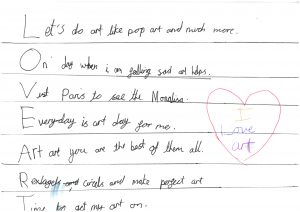 Let's do art like pop art and much more.
On day when i am feeling sad art helps.
Vist Paris to see the Monalisa.
Everyday is art day for me.
Art art you are the best of them all.
and circels and make perfect art
Time for act my art on.
I
Love
art